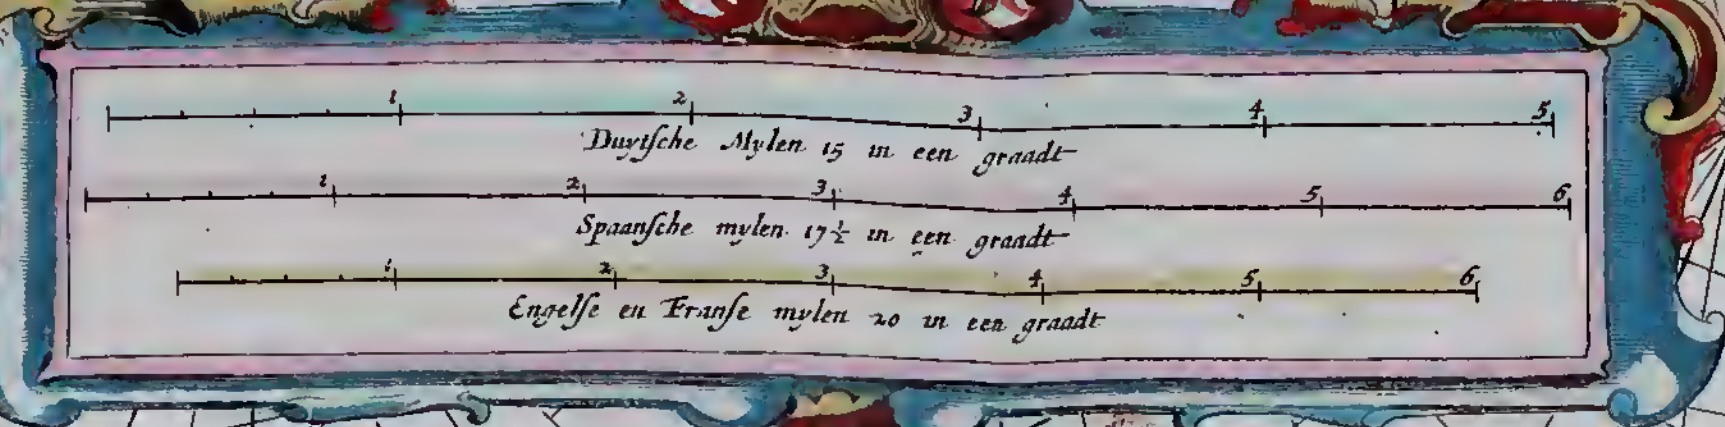 1 2 3 4 5
Duytſche Mylen 15 in een graadt
1 2 3 4 5 6
Spaanſche mylen 17½ in een graadt
1 2 3 4 5 6
Engelſe en Franſe mylen 20 in een graadt